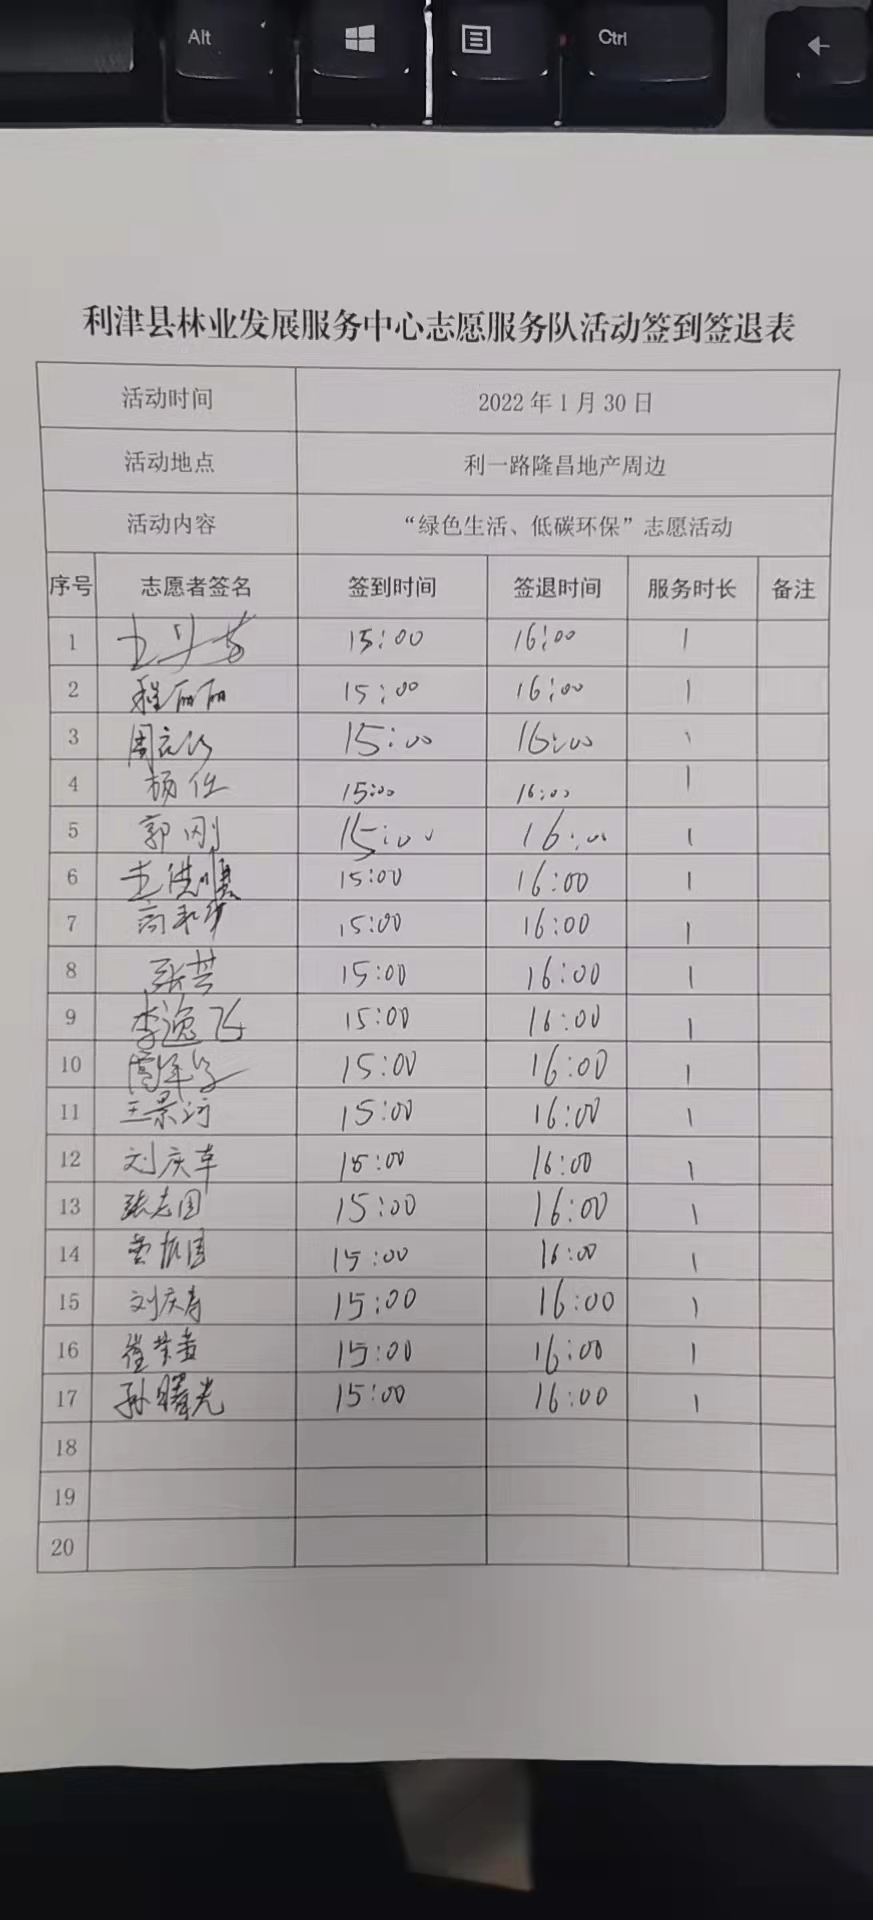 Alt
Ctrl
利津县林业发展服务中心志愿服务队活动签到签退表
活动时间 2022 年 1 月 30 日
活动地点 利一路隆昌地产周边
活动内容 “绿色生活、低碳环保”志愿活动
序号 志愿者签名 签到时间 签退时间 服务时长 备注
1 15:00 16:00 1
2 程丽丽 15:00 16:00 1
3 周 15:00 16:00 1
4 杨 15:00 16:00 1
5 郭刚 15:00 16:00 1
6 15:00 16:00 1
7 高 15:00 16:00 1
8 张芸 15:00 16:00 1
9 李逸飞 15:00 16:00 1
10 15:00 16:00 1
11 王景河 15:00 16:00 1
12 刘庆草 15:00 16:00 1
13 张志国 15:00 16:00 1
14 15:00 16:00 1
15 刘庆 15:00 16:00 1
16 崔 15:00 16:00 1
17 孙曙光 15:00 16:00 1
18
19
20